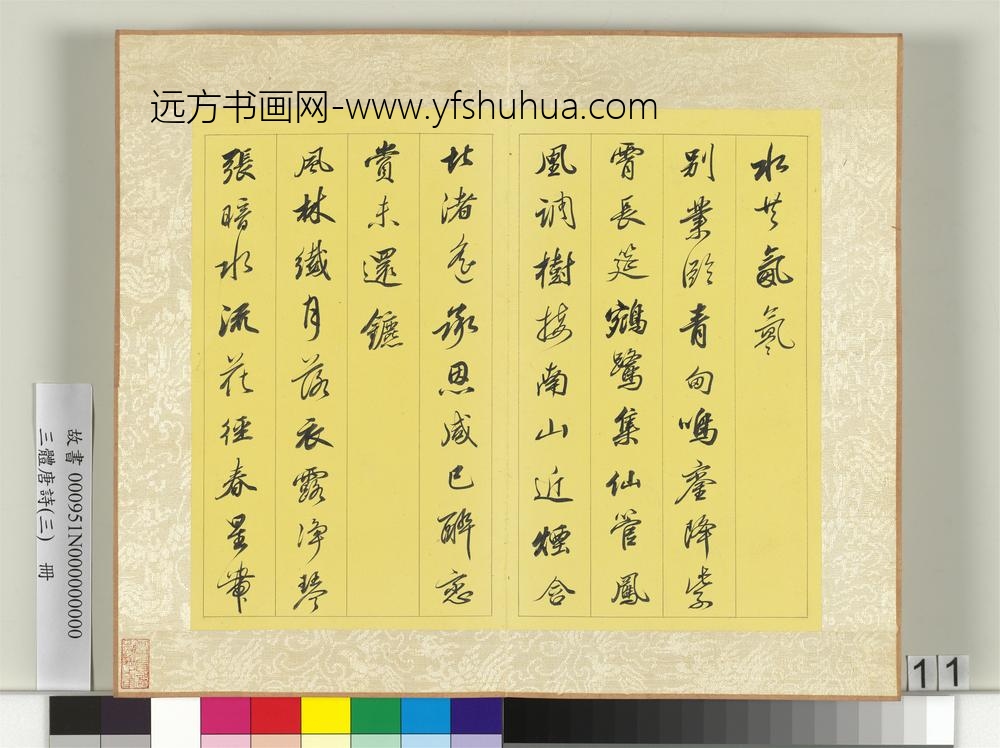 远方书画网-www.yfshuhua.com
水共氤氳
別業臨青甸鳴鑾降紫
霄長筵鵷鷺集仙管鳳
凰調樹接南山近煙含
北渚遙承恩咸已醉戀
賞未還鑣
風林纖月落衣露淨琴
張暗水流花徑春星帶
故書 000951N000000000
三體唐詩(三) 冊
11